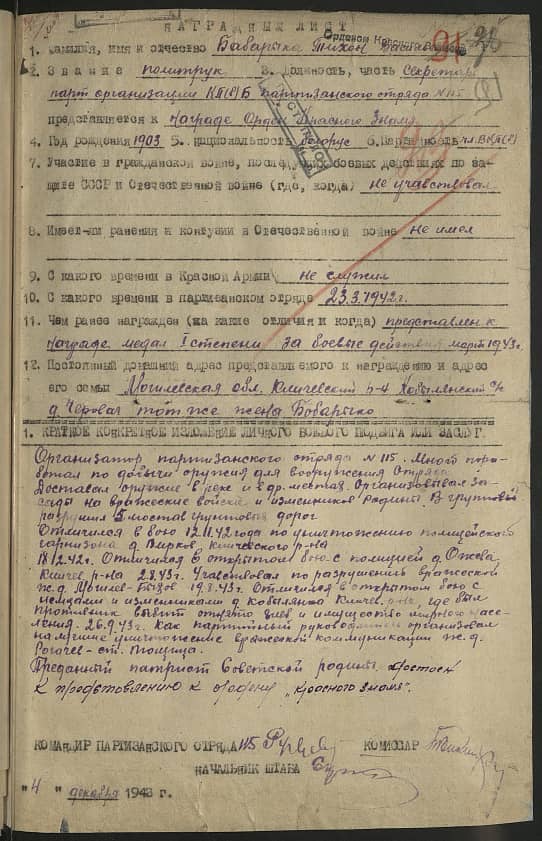 НАГРАДНЫЙ ЛИСТ
Орденом Красного
91
1. Фамилия, имя и отчество Бабарыка Тихон
2. Звание политрук 3. Должность, часть Секретарь
парт организации КП(б)Б партизанского отряда №115
представляется к награде Орден Красного Знамя
4. Год рождения 1903 5. национальность белорус 6. Партийность чл.ВКП(б)
7. Участие в гражданской войне, последующих боевых действиях по за-
щите СССР и Отечественной войне (где, когда) не учавствовал
8. Имеет-ли ранения и контузии в Отечественной войне не имел
9. С какого времени в Красной Армии не служил
10. С какого времени в партизанском отряде 23.3.1942г.
11. Чем ранее награжден (за какие отличия и когда) представлен к
награде медал I степени за боевые действия март 1943г.
12. Постоянный домашний адрес представляемого к награждению и адрес
его семьи Могилевская обл. Кличевский р-н
тот же жена Бобарыко
1. КРАТКОЕ КОНКРЕТНОЕ ИЗЛОЖЕНИЕ ЛИЧНОГО БОЕВОГО ПОДВИГА ИЛИ ЗАСЛУГ.
Организатор партизанского отряда №115. Много пора-
ботал по добычи оружия для вооружения отряда.
Доставал оружие в реке и в др. местах. Организовывал за-
сады на вражеские войска и изменников Родины. В групповой
разрушил 5 мостов грунтовых дорог
Отличился в бою 12.11.42 года по уничтожению полицейского
гарнизона д. Вирков, Кличевского р-на
18.12.42г. Отличился в открытом бою с полицией д. Ожева
Кличев р-на 2.8.43г. Участвовал по разрушению вражеской
ж.д. Могилев-Быхов 19.9.43г. Отличился в открытом бою с
немцами и изменниками д. Кобылянка Кличев. р-на, где был
противник бывит отнято хлеб и имущество мирного насе-
ления. 26.9.43г. Как партийный руководитель организовал
на лучшие уничтожение вражеской коммуникации ж.д.
Рогачев - ст. Тощица.
Преданный патриот Советской родины. Достоен
к представлению к ордену „Красного знамя".
КОМАНДИР ПАРТИЗАНСКОГО ОТРЯДА 115 КОМИССАР
НАЧАЛЬНИК ШТАБА
"4" декабря 1943 г.